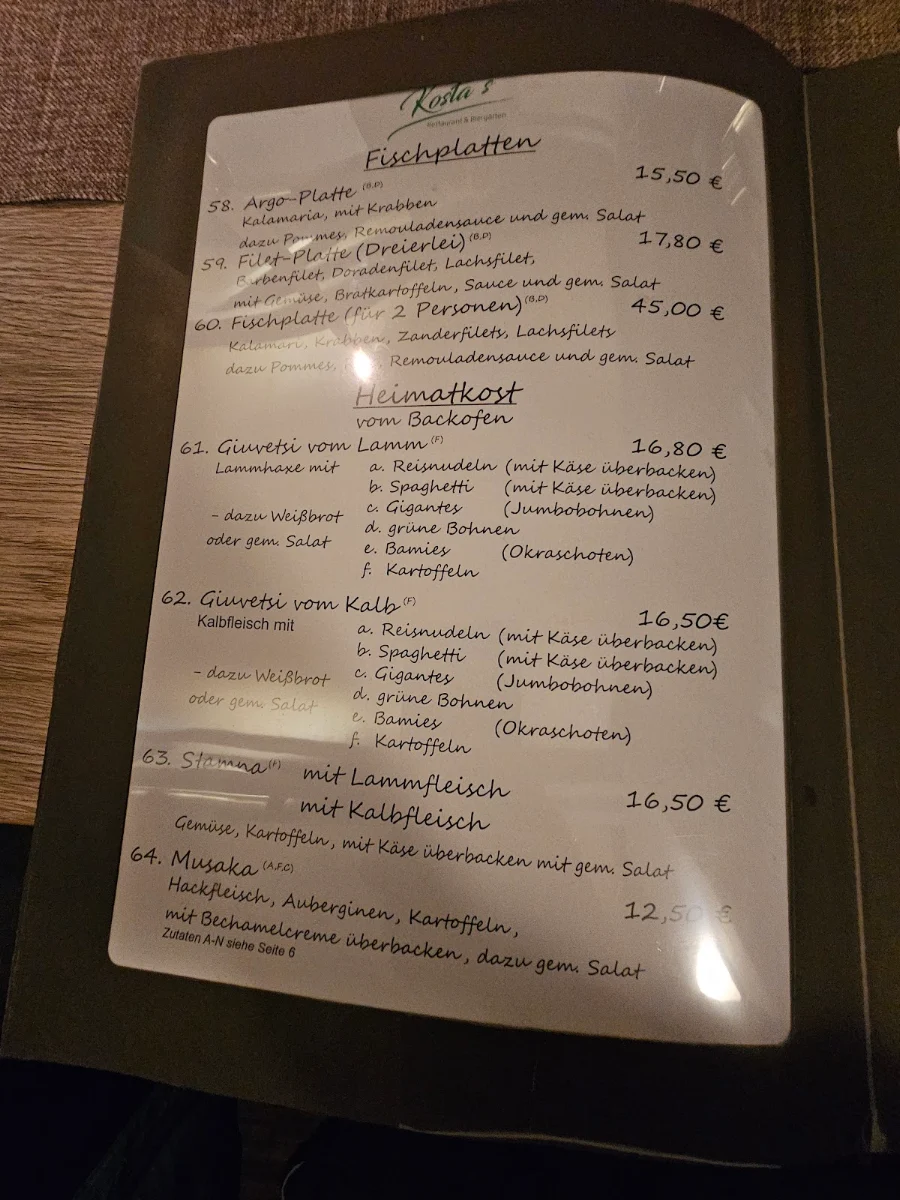 Kosta's
Restaurant & Biergarten
Fischplatten
58. Argo-Platte (B,D) 15,50 €
Kalamaria, mit Krabben
dazu Pommes, Remouladensauce und gem. Salat
59. Filet-Platte (Dreierlei) (B,D) 17,80 €
Barbenfilet, Doradenfilet, Lachsfilet,
mit Gemüse, Bratkartoffeln, Sauce und gem. Salat
60. Fischplatte (für 2 Personen) (B,D) 45,00 €
Kalamari, Krabben, Zanderfilets, Lachsfilets
dazu Pommes, Remouladensauce und gem. Salat
Heimatkost
vom Backofen
61. Giuvetsi vom Lamm (F) 16,80 €
Lammhaxe mit a. Reisnudeln (mit Käse überbacken)
b. Spaghetti (mit Käse überbacken)
- dazu Weißbrot c. Gigantes (Jumbobohnen)
oder gem. Salat d. grüne Bohnen
e. Bamies (Okraschoten)
f. Kartoffeln
62. Giuvetsi vom Kalb (F) 16,50€
Kalbfleisch mit a. Reisnudeln (mit Käse überbacken)
b. Spaghetti (mit Käse überbacken)
- dazu Weißbrot c. Gigantes (Jumbobohnen)
oder gem. Salat d. grüne Bohnen
e. Bamies (Okraschoten)
f. Kartoffeln
63. Stamna (F) mit Lammfleisch
mit Kalbfleisch 16,50 €
Gemüse, Kartoffeln, mit Käse überbacken mit gem. Salat
64. Musaka (A,F,C) 12,50 €
Hackfleisch, Auberginen, Kartoffeln,
mit Bechamelcreme überbacken, dazu gem. Salat
Zutaten A-N siehe Seite 6